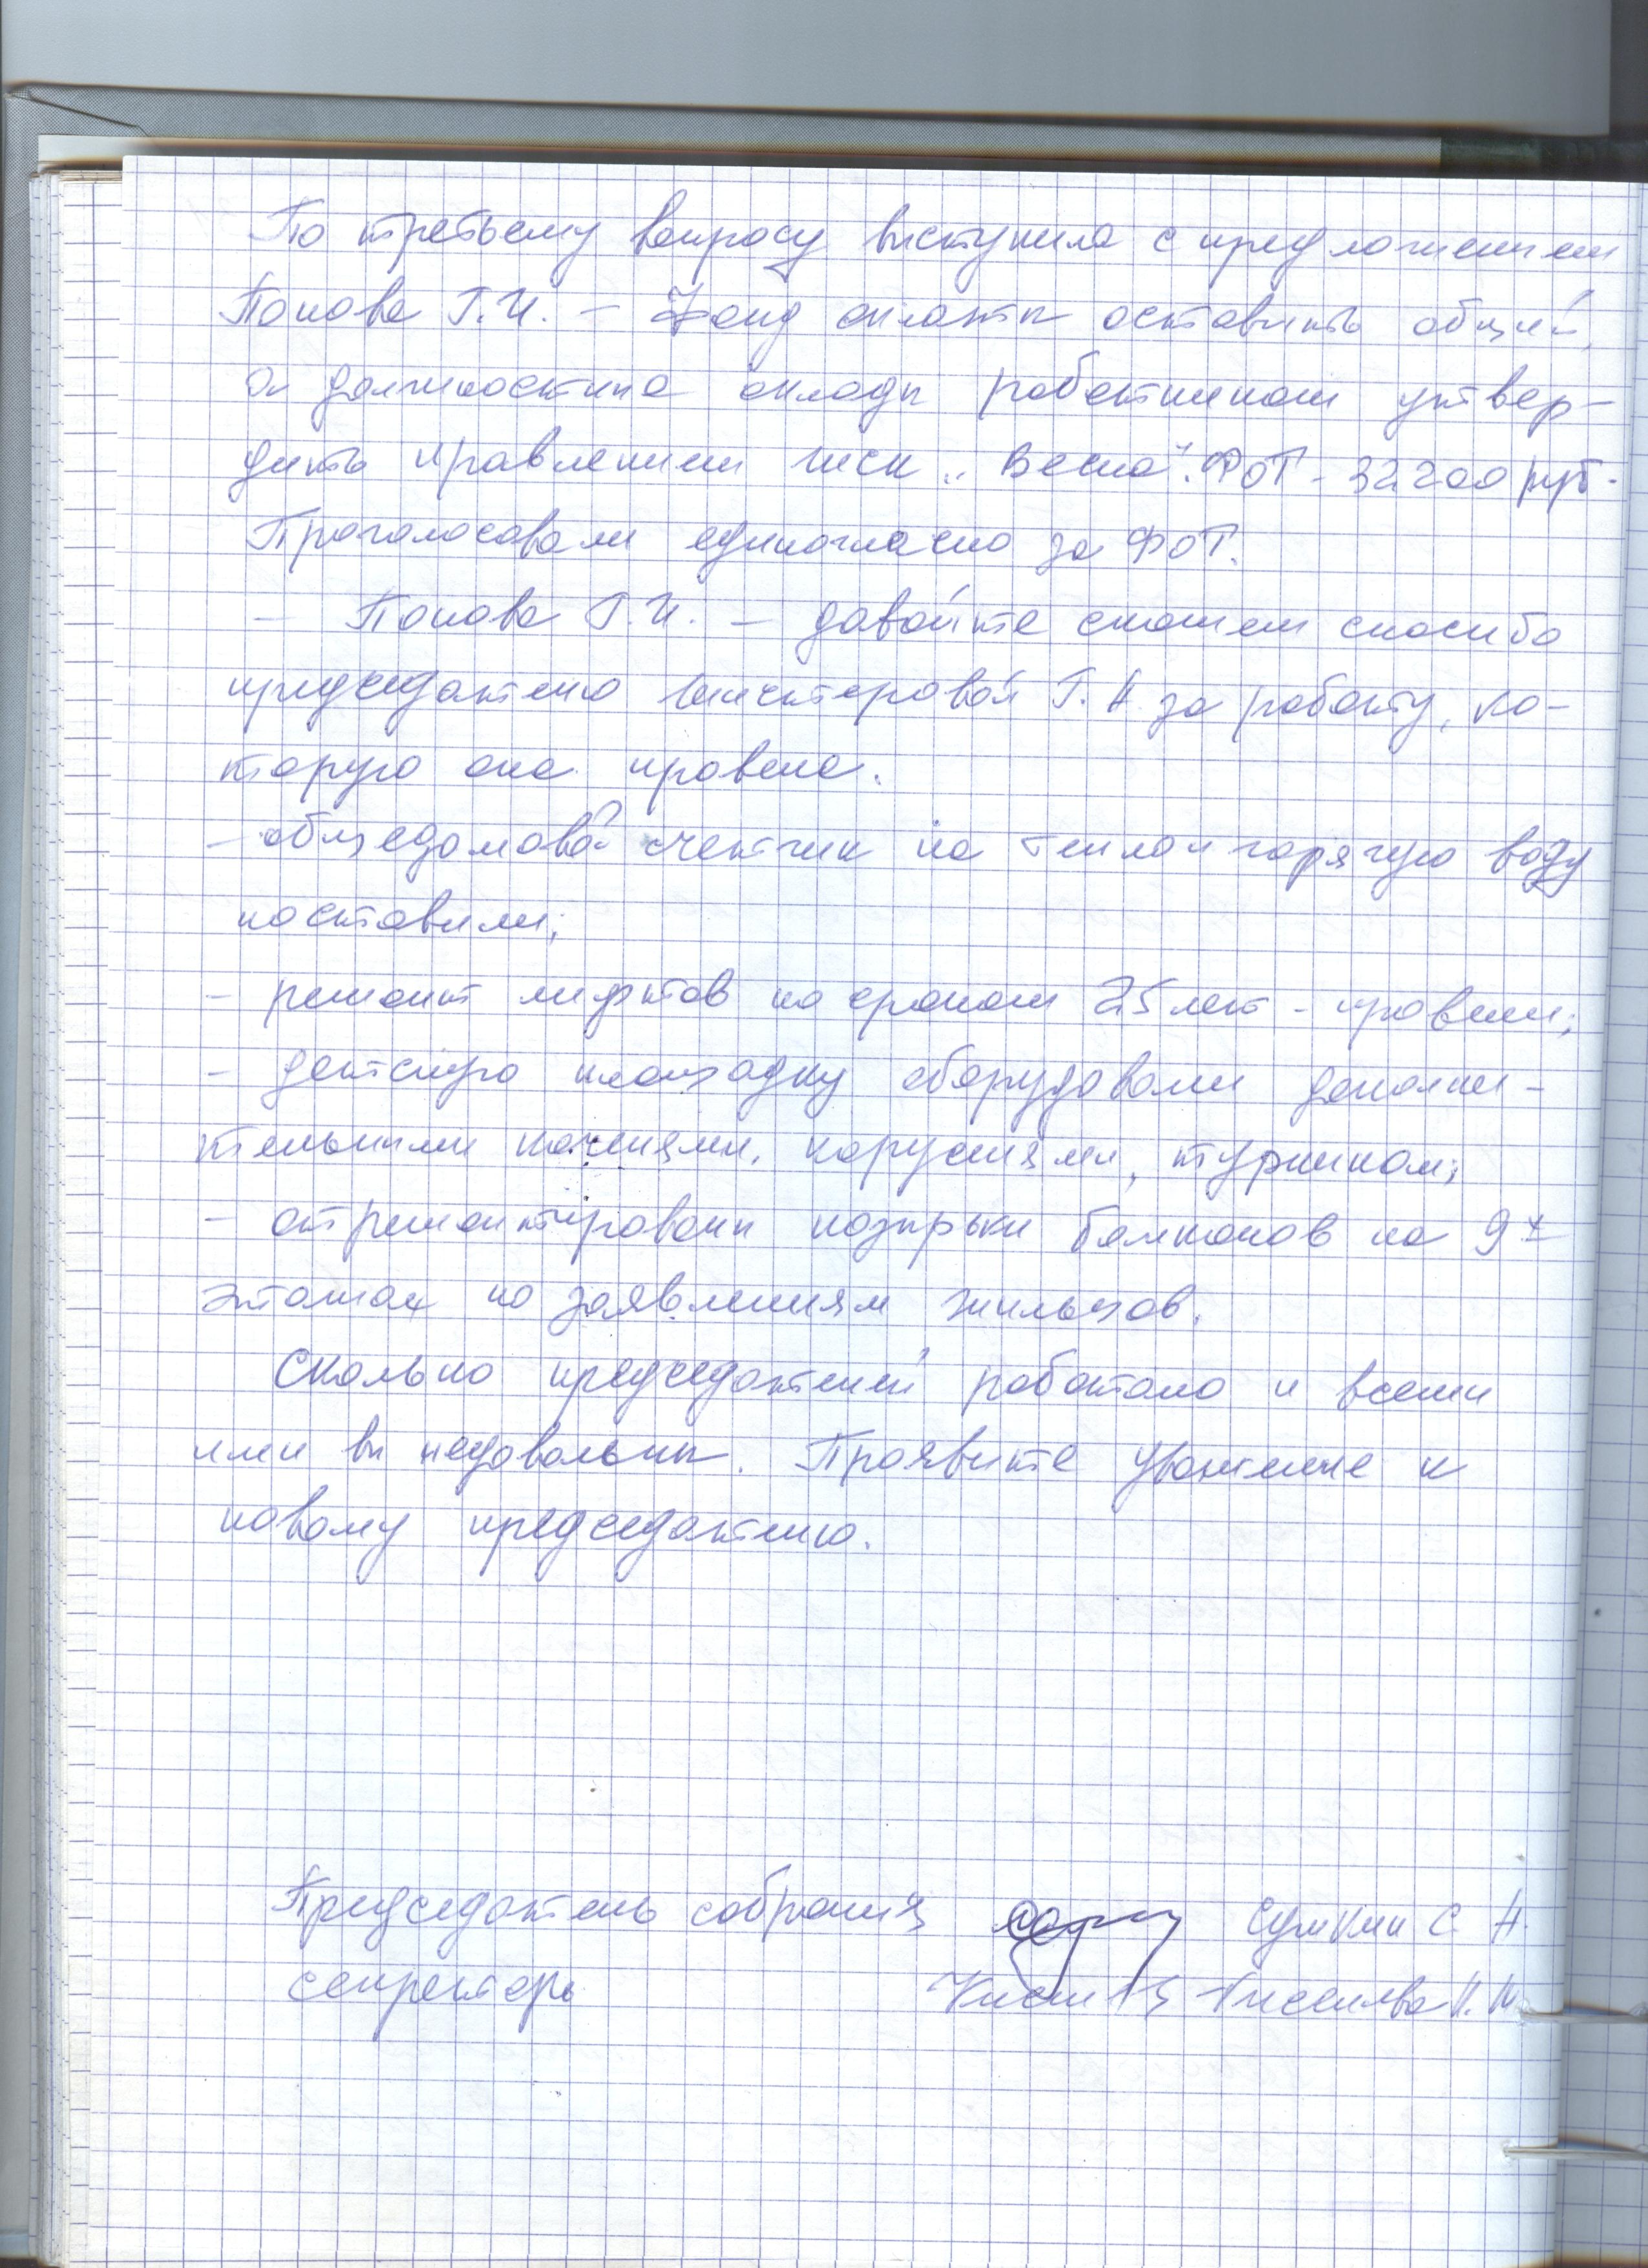 По третьему вопросу выступила с предложением
Попова Г.И. – Фонд оплаты оставить общий,
а должностные оклады работникам утвер-
дить правлением ЖСК „Весна". ФОТ - 32200 руб.
Проголосовали единогласно за ФОТ.
– Попова Г.И. – давайте скажем спасибо
председателю Г.Н. за работу, ко-
торую она провела.
– общедомовой счетчик на тепло и горячую воду
поставили;
– ремонт лифтов по срокам 25 лет - провели;
– детскую площадку оборудовали дополни-
тельными качелями, карусельями, турником;
– отремонтировали козырьки балконов на 9х
этажах по заявлениям жильцов.
Сколько председателей работало и всеми
ими вы недовольны. Проявите уважение к
новому председателю.
Председатель собрания Сушкин С. Н.
секретарь Киселева Н. М.